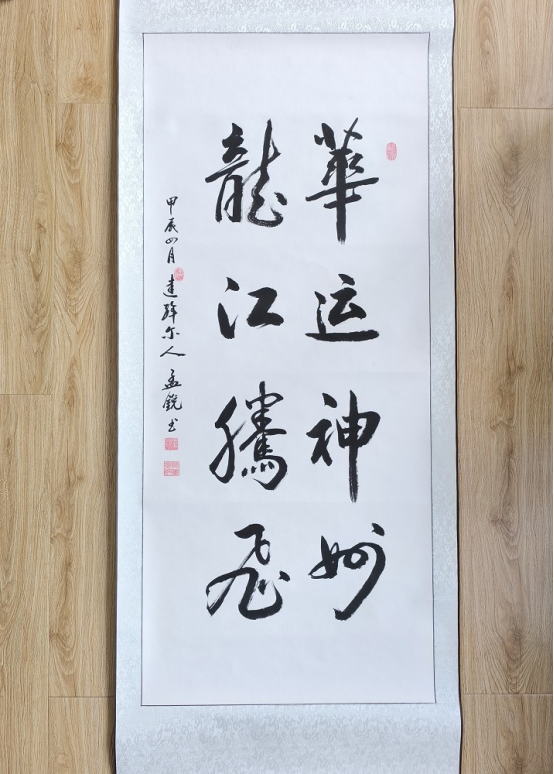 華运神妙
龍江騰飛
甲辰四月 達斡尔人 孟銳书